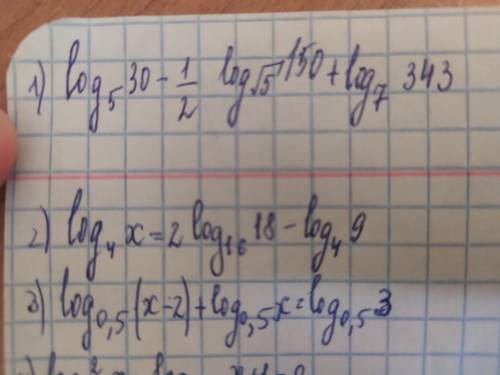 1) log₅ 30 - 1/2 log√5 150 + log₇ 343
2) log₄ x = 2 log₁₆ 18 - log₄ 9
3) log₀,₅ (x-2) + log₀,₅ x = log₀,₅ 3